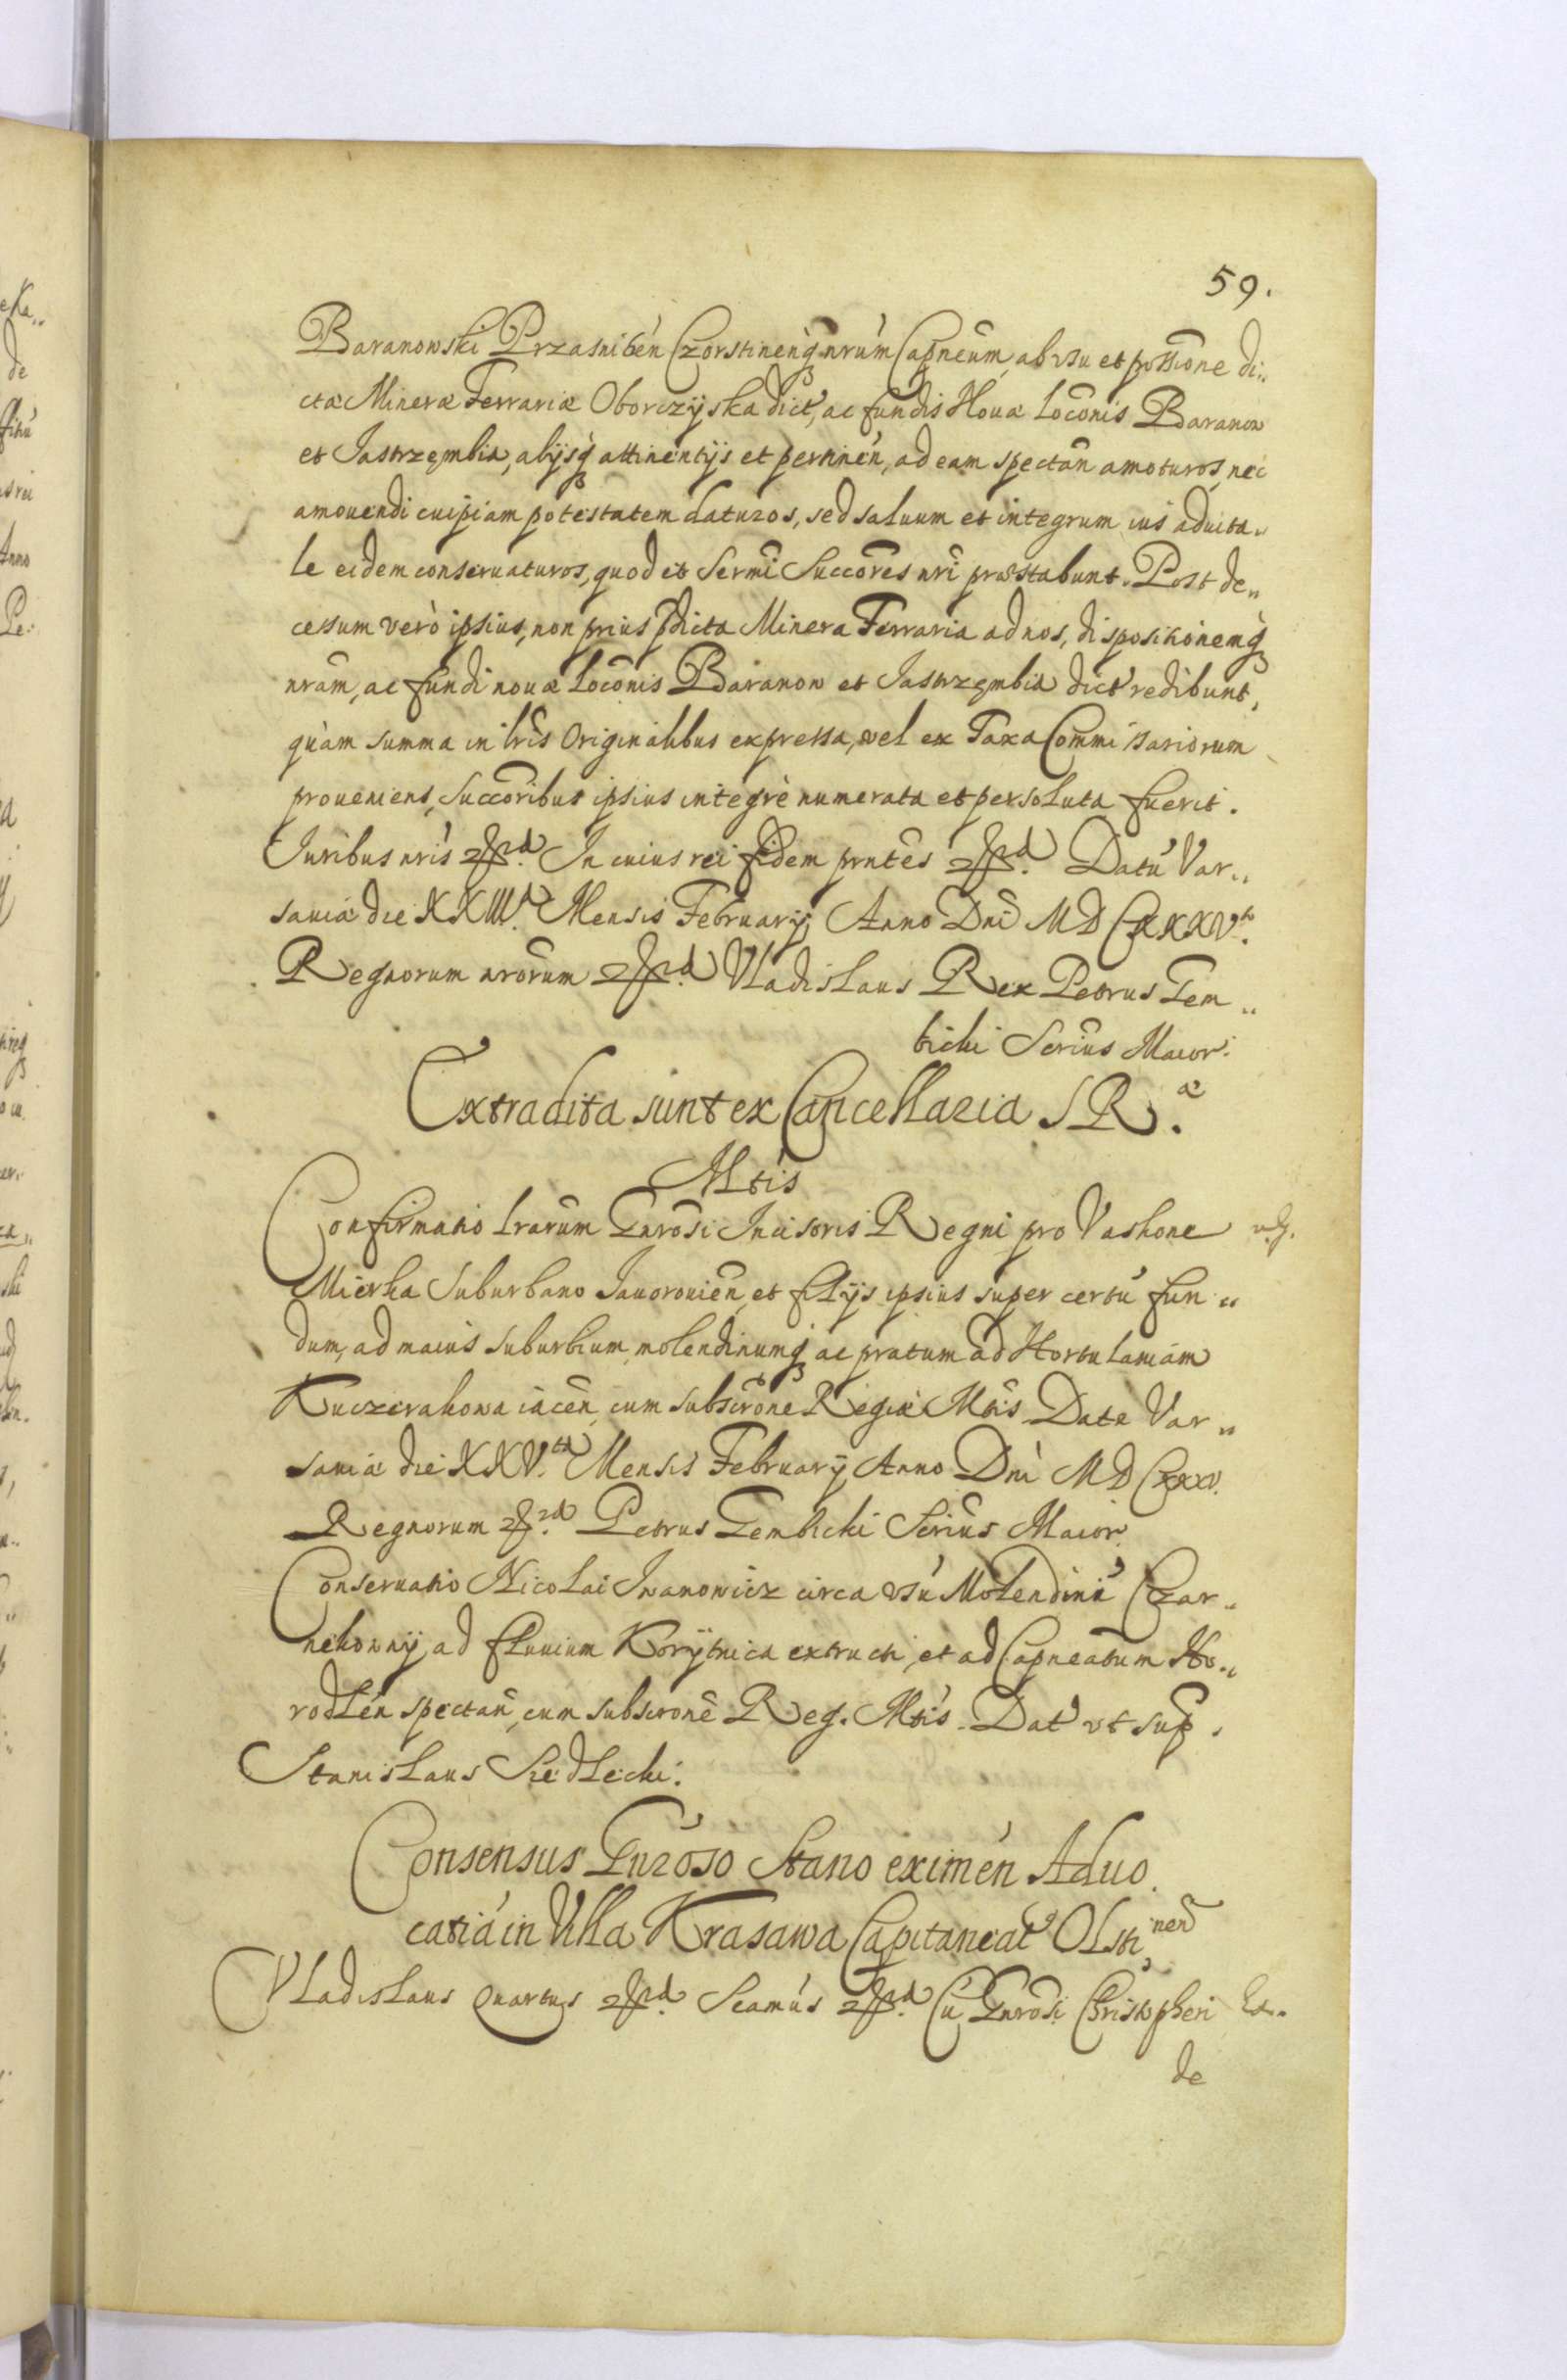 59.
Baranowski Przasnibén Czorstinenq nrum Capneūm, ab vsu et possione di„
ctæ Mineræ Ferrariæ Oborczÿska dict', ac fundis Nouæ Loconis Baranow
et Jastrzęmbia, alijsq attinentijs et pertinen, ad eam spectan amoturos, nec
amouendi cuipiam potestatem daturos, sed saluum et integrum ius aduita„
le eidem conseruaturos, quod et Sermi Succores nri præstabunt. Post de„
cessum verò ipsius, non prius pdicta Minera Ferraria ad nos, dispositionemq
nram, ac fundi nouæ Loconis Baranow et Jastrzęmbia dict' redibunt,
quàm summa in lris Originalibus expressa, vel ex Taxa Commissariorum
proueniens, Succoribus ipsius integrè numerata et persoluta fuerit.
Juribus nris In cuius rei fidem prntes Datū Var„
sauiæ die XXIII. Mensis Februarij Anno Dni MDCXXXV.
Regnorum nrorum Vladislaus Rex Petrus Gem„
bicki Secrius Maior.
Extradita sunt ex Cancellaria S R.æ
Mtis
Confirmatio lrarum Gnrosi Incisoris Regni pro Vaskone
Mierka Suburbano Jauorouien, et filijs ipsius super certū fun„
dum, ad maius suburbium, molendinumq ac pratum ad Hortulaniam
Kuczerakowa iacen, cum subscrone Regiæ Mtis Datæ Var„
sauiæ die XXV.ta Mensis Februarij Anno Dni MDCXXXV.
Regnorum Petrus Gembicki Scrius Maior.
Conseruatio Nicolai Iwanowicz circa vsū Molendini Czar„
nikowny, ad fluuium Korÿtnica extructi, et ad Capneatum Ho„
rodlen spectan, cum subscrone Reg. Mtis. Dat' vt sup.
Stanislaus Siedlecki.
Consensus Gnroso Stano eximen Aduo
catiā in Villa Krasawa Capitaneat' Olsti nen
Vladislaus Quartus Seamus Cū Gnrosi Christopheri
de